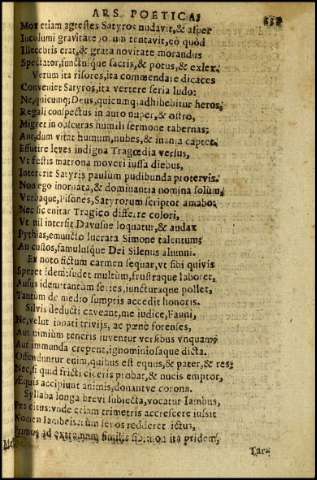 ARS POETICA.
Mox etiam agrestes Satyros nudavit, & asper
Incolumi gravitate jocum tentavit, eò quòd
Illecebris erat, & grata novitate morandus
Spectator, functusque sacris, & potus, & exlex.
Verum ita risores, ita commendare dicaces
Conveniet Satyros, ita vertere seria ludo:
Ne, quicunque Deus, quicunque adhibebitur heros,
Regali conspectus in auro nuper, & ostro,
Migret in obscuras humili sermone tabernas:
Aut, dum vitat humum, nubes, & inania captet.
Effutire leves indigna Tragœdia versus,
Ut festis matrona moveri jussa diebus,
Intererit Satyris paulum pudibunda protervis.
Non ego inornata, & dominantia nomina solum,
Verbaque, Pisones, Satyrorum scriptor amabo:
Nec sic enitar Tragico differre colori,
Ut nil intersit Davusne loquatur, & audax
Pythias, emuncto lucrata Simone talentum;
An custos, famulusque Dei Silenus alumni.
Ex noto fictum carmen sequar, ut sibi quivis
Speret idem: sudet multum, frustraque laboret,
Ausus idem: tantum series, juncturaque pollet,
Tantum de medio sumptis accedit honoris.
Silvis deducti caveant, me judice, Fauni,
Ne, velut innati trivijs, ac pæne forenses,
Aut nimium teneris juventur versibus unquam,
Aut immunda crepent, ignominiosaque dicta.
Offenduntur enim, quibus est equus, & pater, & res;
Nec, si quid fricti ciceris probat, & nucis emptor,
Æquis accipiunt animis, donantve corona.
Syllaba longa brevi subjecta, vocatur Iambus,
Pes citus: unde etiam trimetris accrescere jussit
Nomen Iambeis: cum senos redderet ictus,
Primus ad extremum similis sibi: non ita pridem,
Tar-